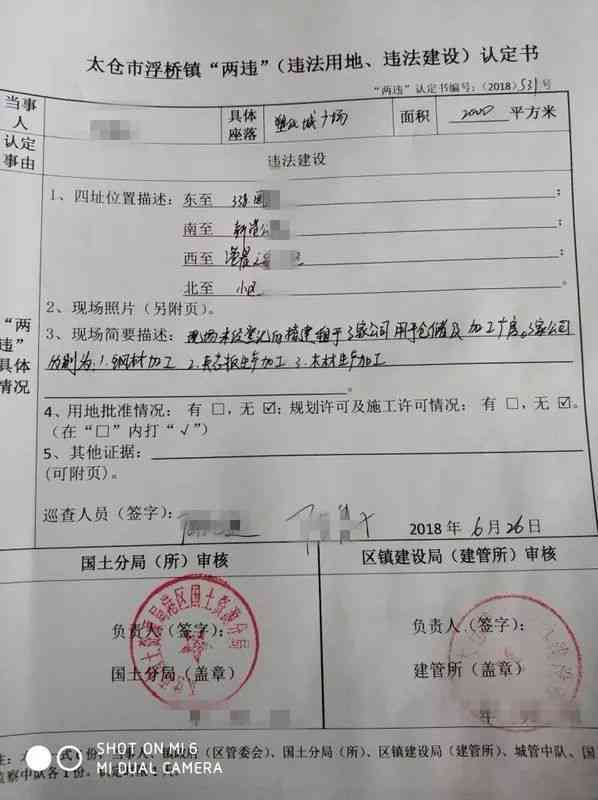 太仓市浮桥镇“两违”(违法用地、违法建设)认定书
“两违”认定书编号:(2018)531号
当事人
具体座落
广场
面积
2000 平方米
认定事由
违法建设
“两违”具体情况
1、四址位置描述:东至
;
南至
;
西至
;
北至 小区
。
2、现场照片(另附页)。
3、现场简要描述:现两未经登记后搭建租于3家公司用于仓储及加工厂房。3家公司
分别为:1.钢材加工 2.夹芯板生产加工 3.木材生产加工
。
4、用地批准情况:有□,无☑;规划许可及施工许可情况:有□,无☑。
(在“□”内打“√”)
5、其他证据:
(可附页)。
巡查人员(签字):
2018年6月26日
国土分局(所)审核
区镇建设局(建管所)审核
负责人(签字):
负责人(签字):
国土分局(盖章)
建管所(盖章)
港区国土资源分局
年
份,当事人、镇政府(区管委会)、国土分局(所)、区镇建设局(建管所)、城管中队、国
监察中队各1份。
SHOT ON MI 6
MI DUAL CAMERA